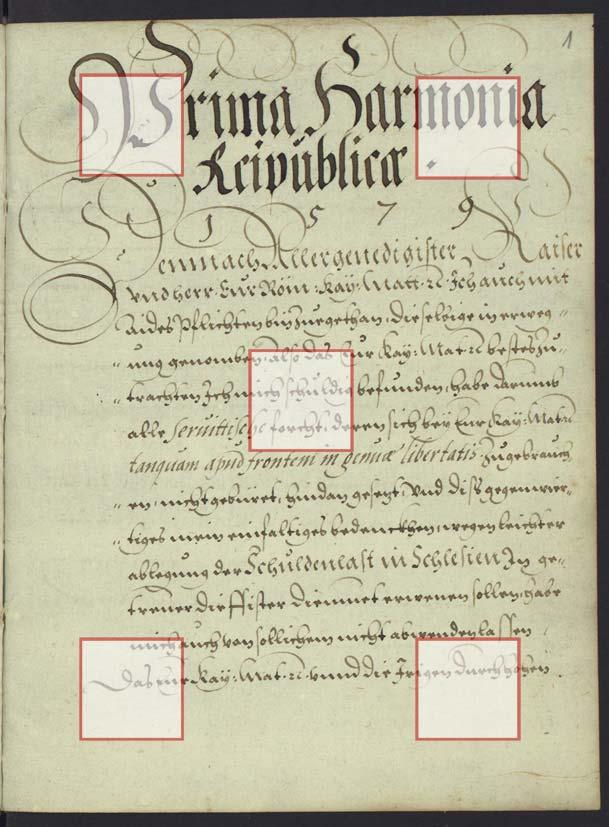 1
Prima Harmonia
Reipublicæ.
1 5 7 9
Demnach Allergenedigister Kaiser
vnd herr. Eur Röm: Kay: Matt: zc Ich auch mit
aides Pflichten bin zuegethan, dieselbige in erweg=
ung genomben, also das Eur Kay: Mat: zc bestes zu=
trachten Ich mich schuldig befunden, habe darumb
alle servitische forcht, deren sich bey Eur Kay: Mat: zc
tanquam apud frontem in genuæ libertatis. Zugebrauch
en, nicht gebüret, hindan gesezt, Vnd diß gegenwer=
tiges mein einfaltiges bedenckhen, wegen leichter
ablegung der Schuldenlast in Schlesien In ge=
treuer die
sollen, habe
mich auch von sollichem nicht abwenden lassen
Das Eur Kay: Mat: zc vnnd die Irigen durch